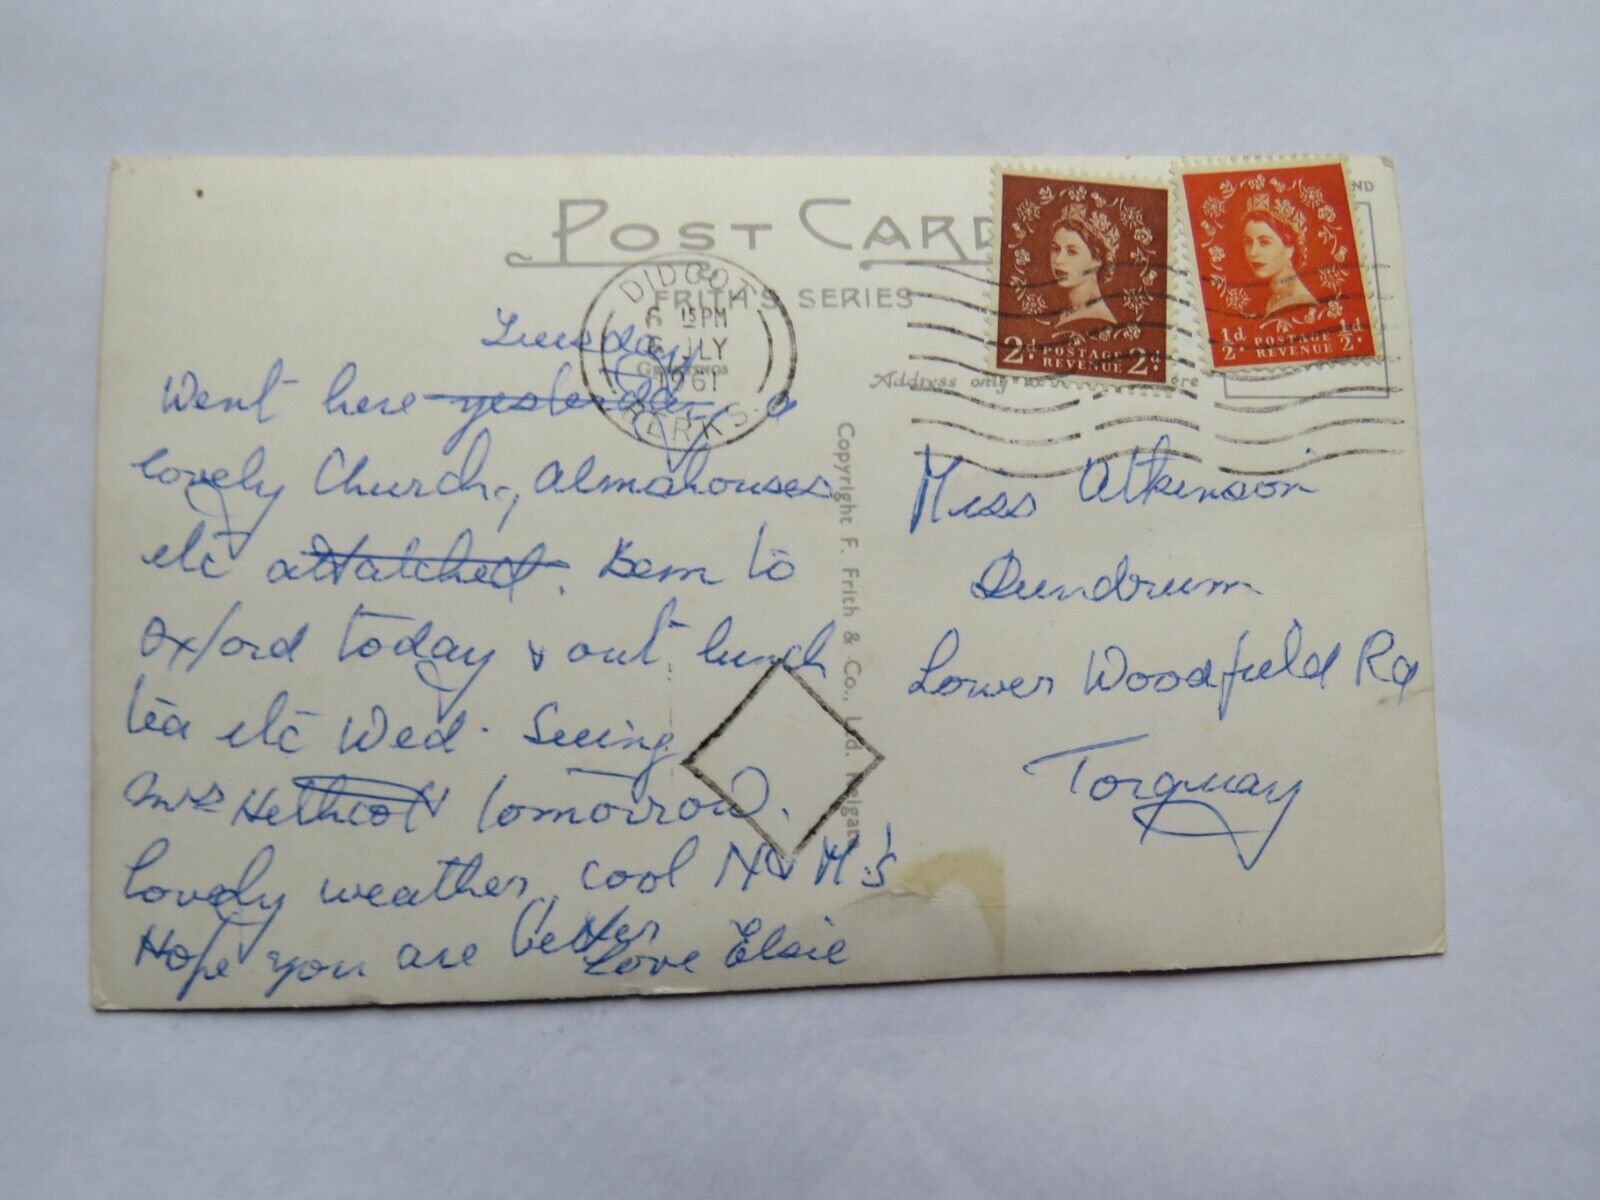 POST CARD
FRITH'S SERIES
DIDCOT
6 15PM
6 JLY
1961
BERKS.
GREETINGS
Address only
2d POSTAGE REVENUE 2d
½d POSTAGE REVENUE ½d
Tuesday
Went here yesterday, a
lovely Church, Almshouses
etc attatched. Been to
Oxford today & out lunch
tea etc Wed. Seeing
Mrs Hethcott tomorrow.
lovely weather, cool N & M's
Hope you are better
Love Elsie
Copyright F. Frith & Co., Ltd. Reigate
Miss Atkinson
Dundrum
Lower Woodfield Rd
Torquay